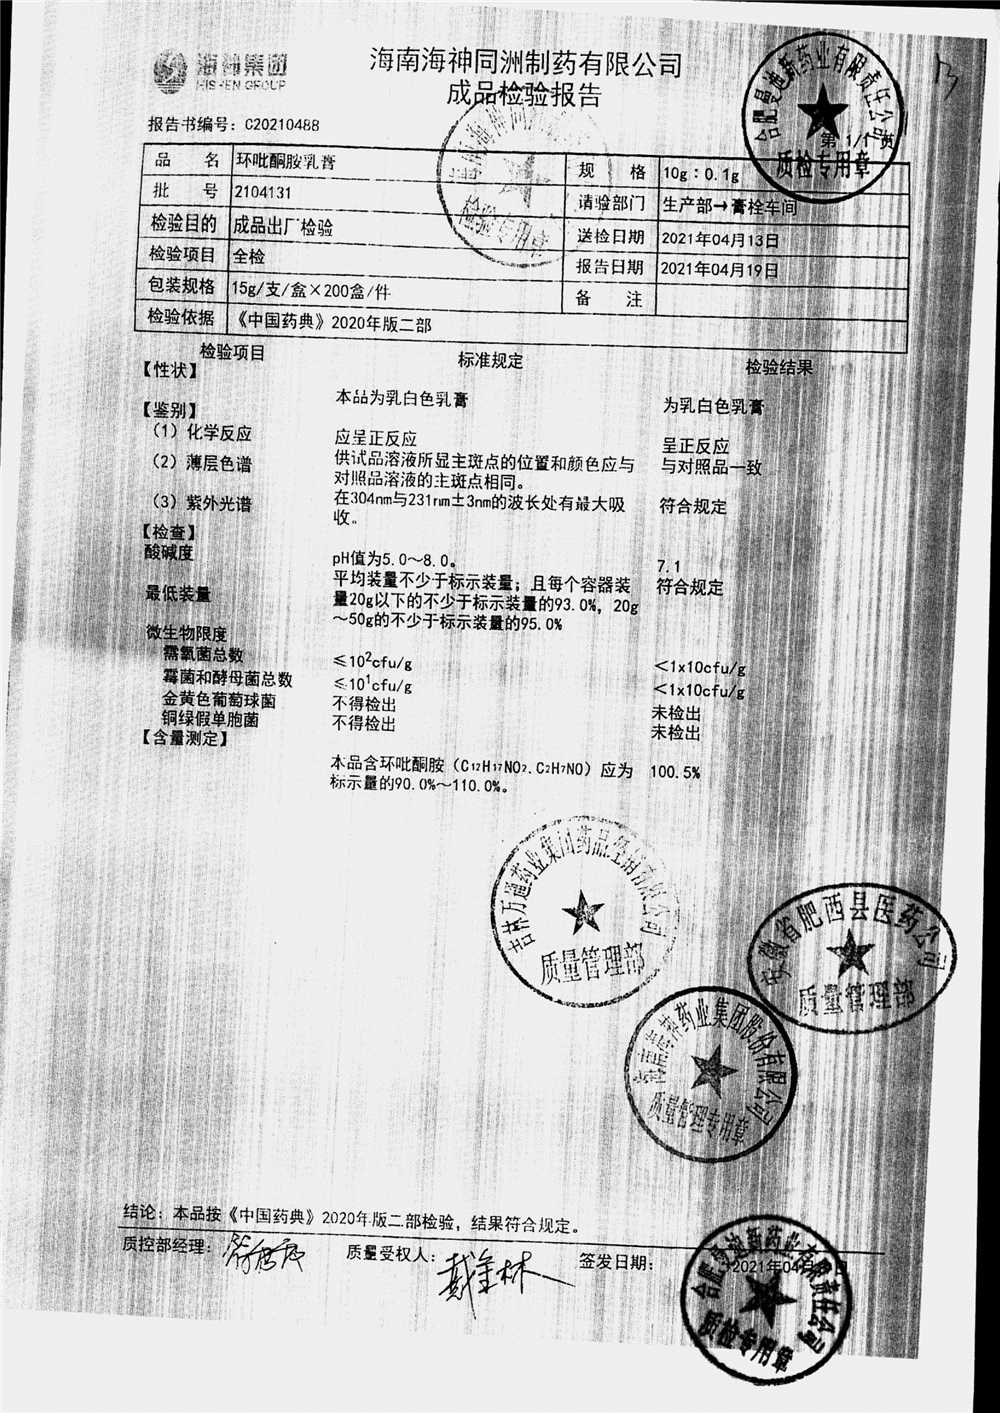 海神集团
HISHEN GROUP
海南海神同洲制药有限公司
成品检验报告
报告书编号：C20210488
第 1/1 页
品 名 环吡酮胺乳膏 规 格 10g：0.1g
批 号 2104131 请验部门 生产部→膏栓车间
检验目的 成品出厂检验 送检日期 2021年04月13日
检验项目 全检 报告日期 2021年04月19日
包装规格 15g/支/盒×200盒/件 备 注
检验依据 《中国药典》2020年版二部
检验项目 标准规定 检验结果
【性状】
本品为乳白色乳膏 为乳白色乳膏
【鉴别】
（1）化学反应 应呈正反应 呈正反应
（2）薄层色谱 供试品溶液所显主斑点的位置和颜色应与 与对照品一致
对照品溶液的主斑点相同。
（3）紫外光谱 在304nm与231nm±3nm的波长处有最大吸 符合规定
收。
【检查】
酸碱度 pH值为5.0～8.0。 7.1
最低装量 平均装量不少于标示装量；且每个容器装 符合规定
量20g以下的不少于标示装量的93.0%，20g
～50g的不少于标示装量的95.0%
微生物限度
需氧菌总数 ≤10²cfu/g <1x10cfu/g
霉菌和酵母菌总数 ≤10¹cfu/g <1x10cfu/g
金黄色葡萄球菌 不得检出 未检出
铜绿假单胞菌 不得检出 未检出
【含量测定】
本品含环吡酮胺（C12H17NO2.C2H7NO）应为 100.5%
标示量的90.0%～110.0%。
结论：本品按《中国药典》2020年版二部检验，结果符合规定。
质控部经理： 质量受权人：戴金林 签发日期： 2021年04月 日
合肥曼迪新药业有限责任公司
质检专用章
检验专用章
吉林万通药业集团药品经销有限公司
质量管理部
安徽省肥西县医药公司
质量管理部
药业集团股份有限公司
质量管理专用章
合肥曼迪新药业有限责任公司
质检专用章